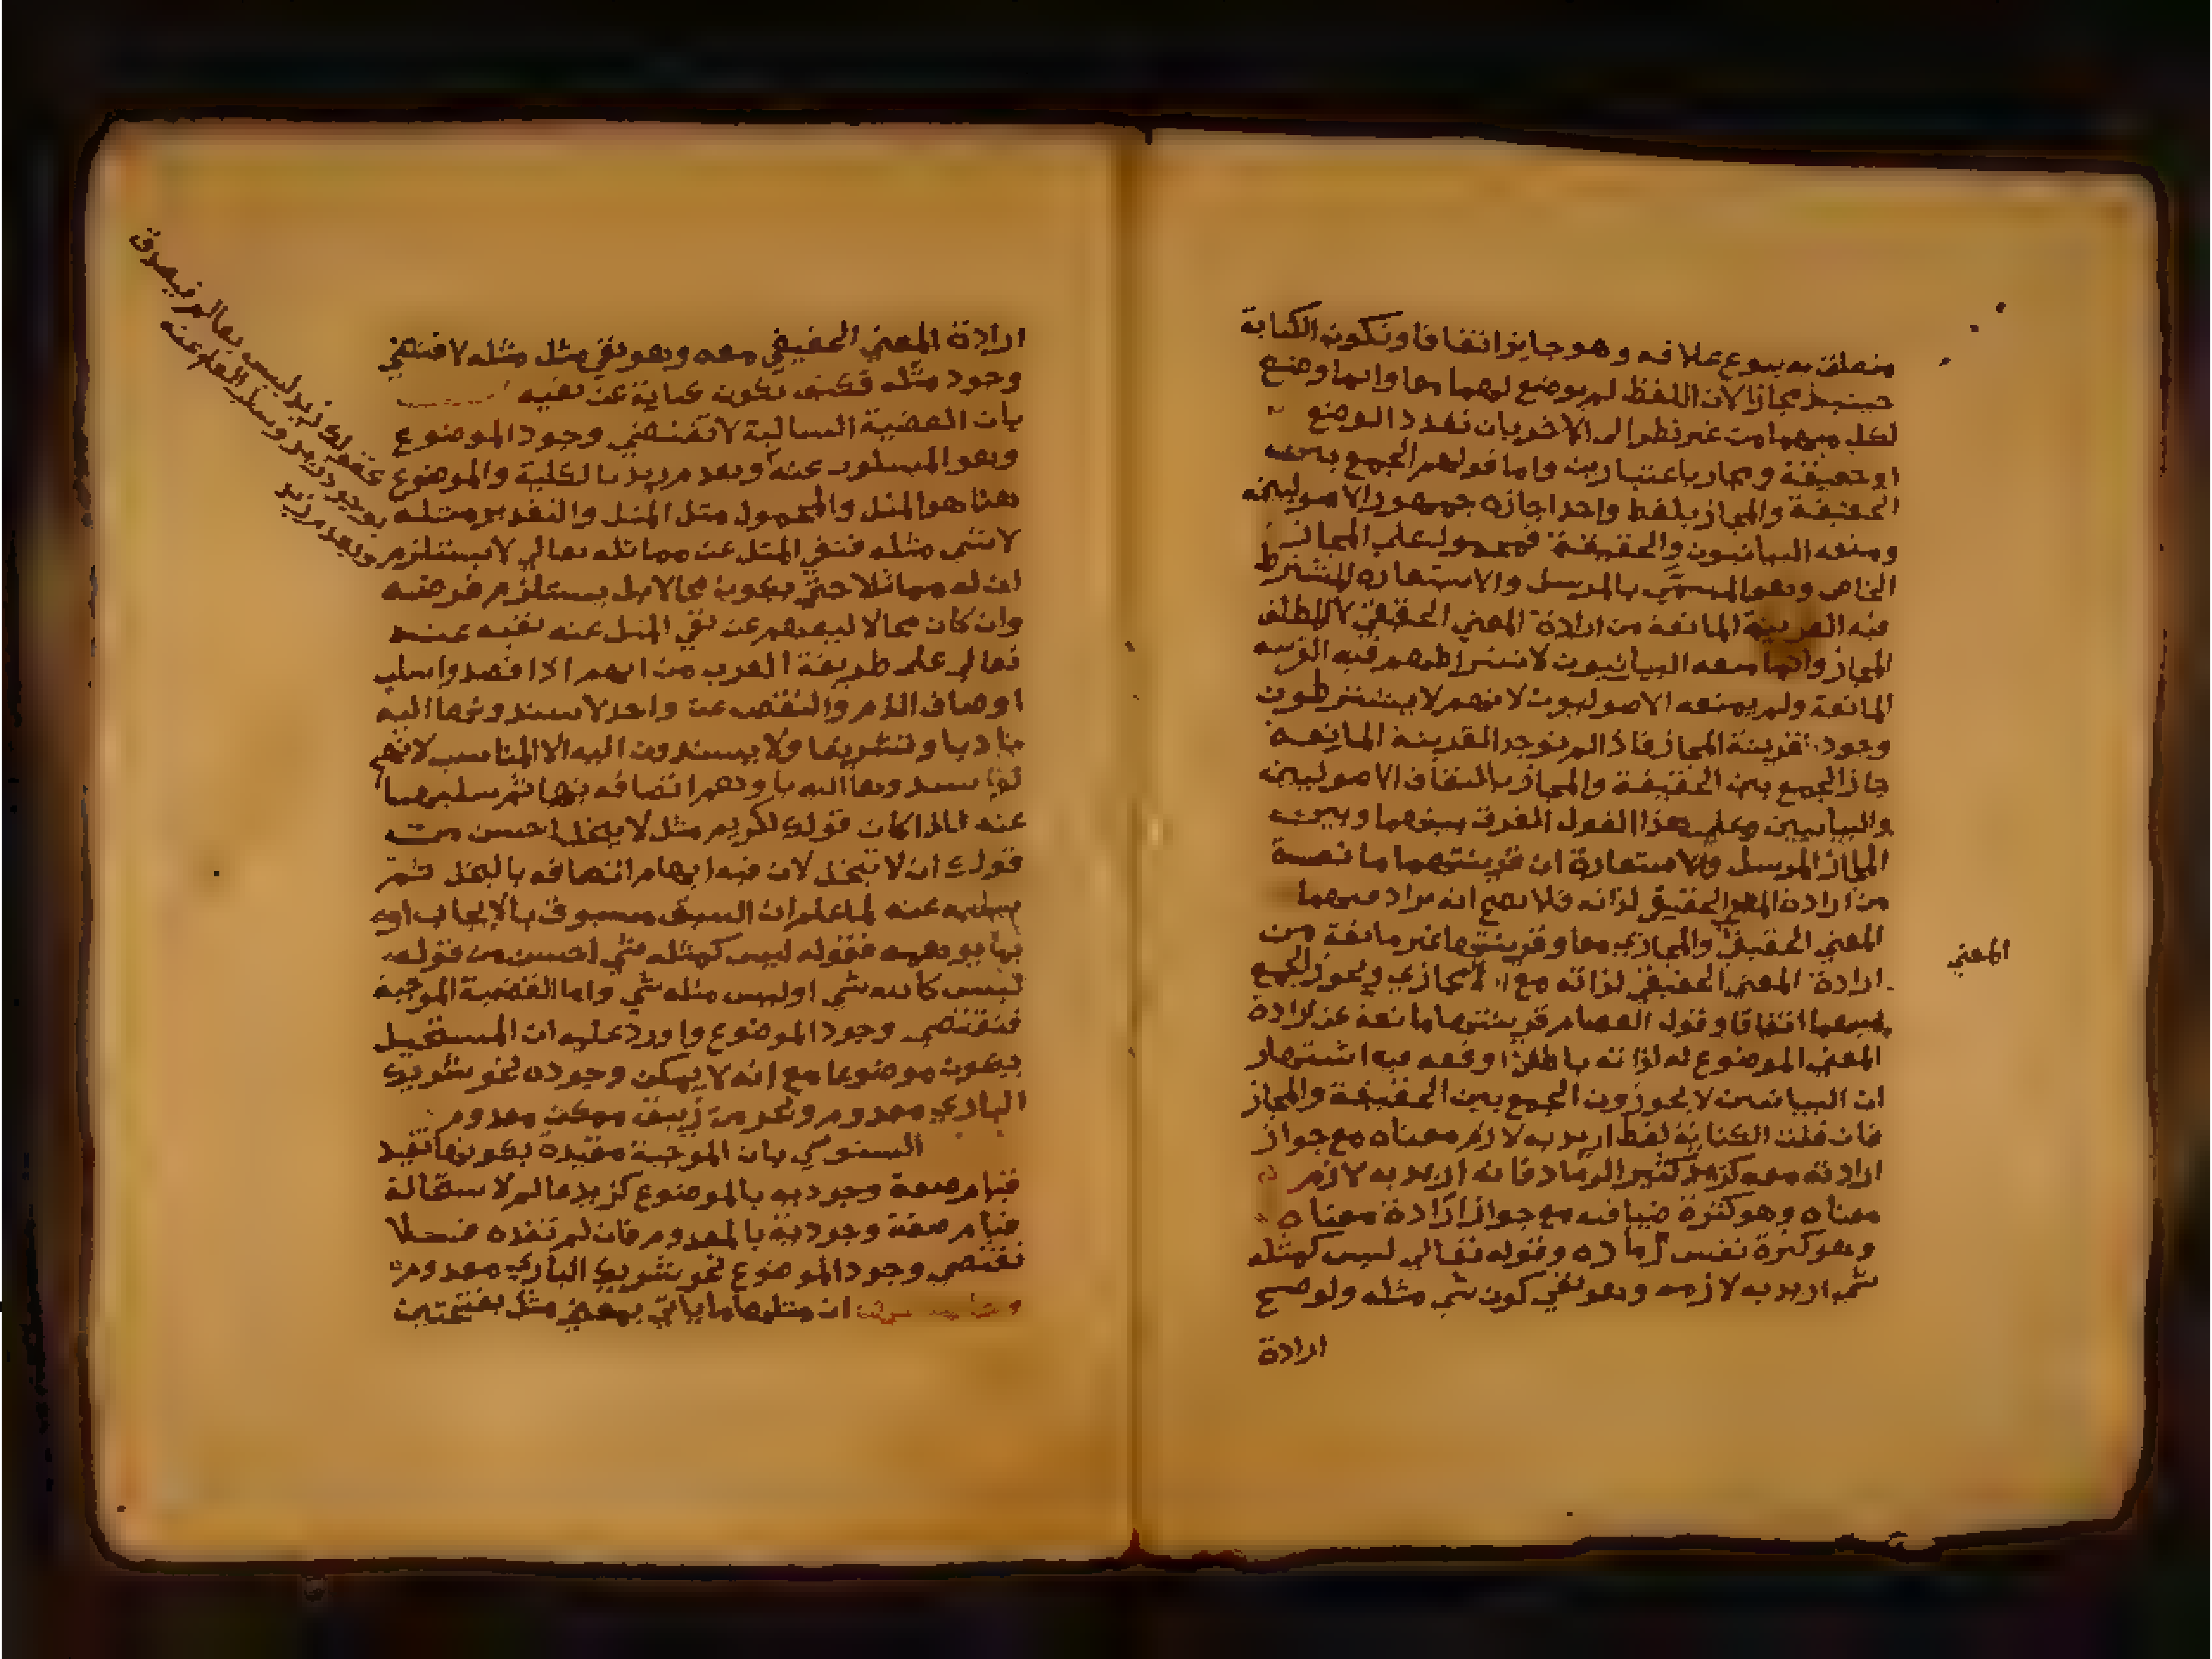 متعلق به بنوع علاقه وهو جايز اتفاقا وتكون الكناية
حينيذ مجازا لان اللفظ لم يوضع لهما معا وانما وضع
لكل منهما من غير نظر الى الاخر بان تعدد الوضع
او حقيقة ومجاز باعتبارين واما قولهم الجمع بين
الحقيقة والمجاز بلفظ واحد اجازه جمهور الاصوليين
ومنعه البيانيون والحقيقة فمحمول على المجاز
الخاص وهو المسمى بالمرسل والاستعارة المشترط
فيه القرينة المانعة من ارادة المعني الحقيقي لا المطلق
المجاز وانما منعه البيانيون لاشتراطهم فيه القرينه
المانعة ولم يمنعه الاصوليون لانهم لا يشترطون
وجود قرينة المجاز فاذا لم توجد القرينة المانعة
جاز الجمع بين الحقيقة والمجاز باتفاق الاصوليين
والبيانيين وعلى هذا القول الفرق بينهما وبين
المجاز المرسل والاستعارة ان قرينتهما مانعة
من ارادة المعني الحقيقي لذاته فلا يصح انه يراد منهما
المعني الحقيقي والمجازي معا وقرينتها غير مانعة من
ارادة المعني الحقيقي لذاته مع المجازي ويجوز الجمع
المعني
بينهما اتفاقا وقول العصام قرينتها مانعة عن ارادة
المعني الموضوع له لذاته باطل اوقعه فيه اشتهار
ان البيانيين لا يجوزون الجمع بين الحقيقة والمجاز
فان قلت الكناية لفظ اريد به لازم معناه مع جواز
ارادته معه كزيد كثير الرماد فانه اريد به لازم
معناه وهو كثرة ضيافته مع جواز ارادة معناه
وهو كثرة نفس رماده وقوله تعالي ليس كمثله
شي اريد به لازمه وهو نفي كون شي مثله ولو صح
ارادة
ارادة المعني الحقيقي معه وهو نفي مثل مثله لاقتضي
وجود مثله فكيف تكون كناية عن نفيه
بان القضية السالبة لا تقتضي وجود الموضوع
وهو المسلوب عنه وبعدم زيد بالكلية والموضوع
كقولك زيد ليس بعالم فيصدق
بوجود زيد وسلب العلم عنه
وبعدم زيد
هنا هو المثل والمحمول مثل المثل والتقدير مثله
لا شي مثله فنفي المثل عن مماثله تعالي لا يستلزم
ان له مماثلا حتي يكون محالا بل يستلزم فرضه
وان كان محالا ليفهم عن نفي المثل عنه نفيه عنه
تعالي علي طريقة العرب من انهم اذا قصدوا سلب
اوصاف الذم والنقص عن واحد لا يسندونها اليه
تادبا وتشريفا ولا يسندون اليه الا المناسب لانهم
لو اسندوها اليه باوهم اتصافه بها ثم سلبها
عنه فلذا كان قولك لكريم مثل لا يبخل احسن من
قولك ان لا تبخل لان فيه ايهام اتصافه بالبخل ثم
سلبه عنه لما علم ان السبق مسبوق بالايجاب او
بما يوهمه فقوله ليس كمثله شي احسن من قوله
ليس كالله شي او ليس مثله شي واما القضية الموجبة
فتقتضي وجود الموضوع واورد عليه ان المستحيل
يكون موضوعا مع انه لا يمكن وجوده نحو شريك
الباري معدوم ونحو من زيبق ممكن معدوم
السنوسي بان الموجبة مقيدة بكونها تفيد
قيام صفة وجودية بالموضوع كزيد عالم لاستحالة
قيام صفة وجودية بالمعدوم فان لم تفده فلا
تقتضي وجود الموضوع نحو شريك الباري معدوم
ان مثلها ما ياتي بمعني مثل بفتحتين